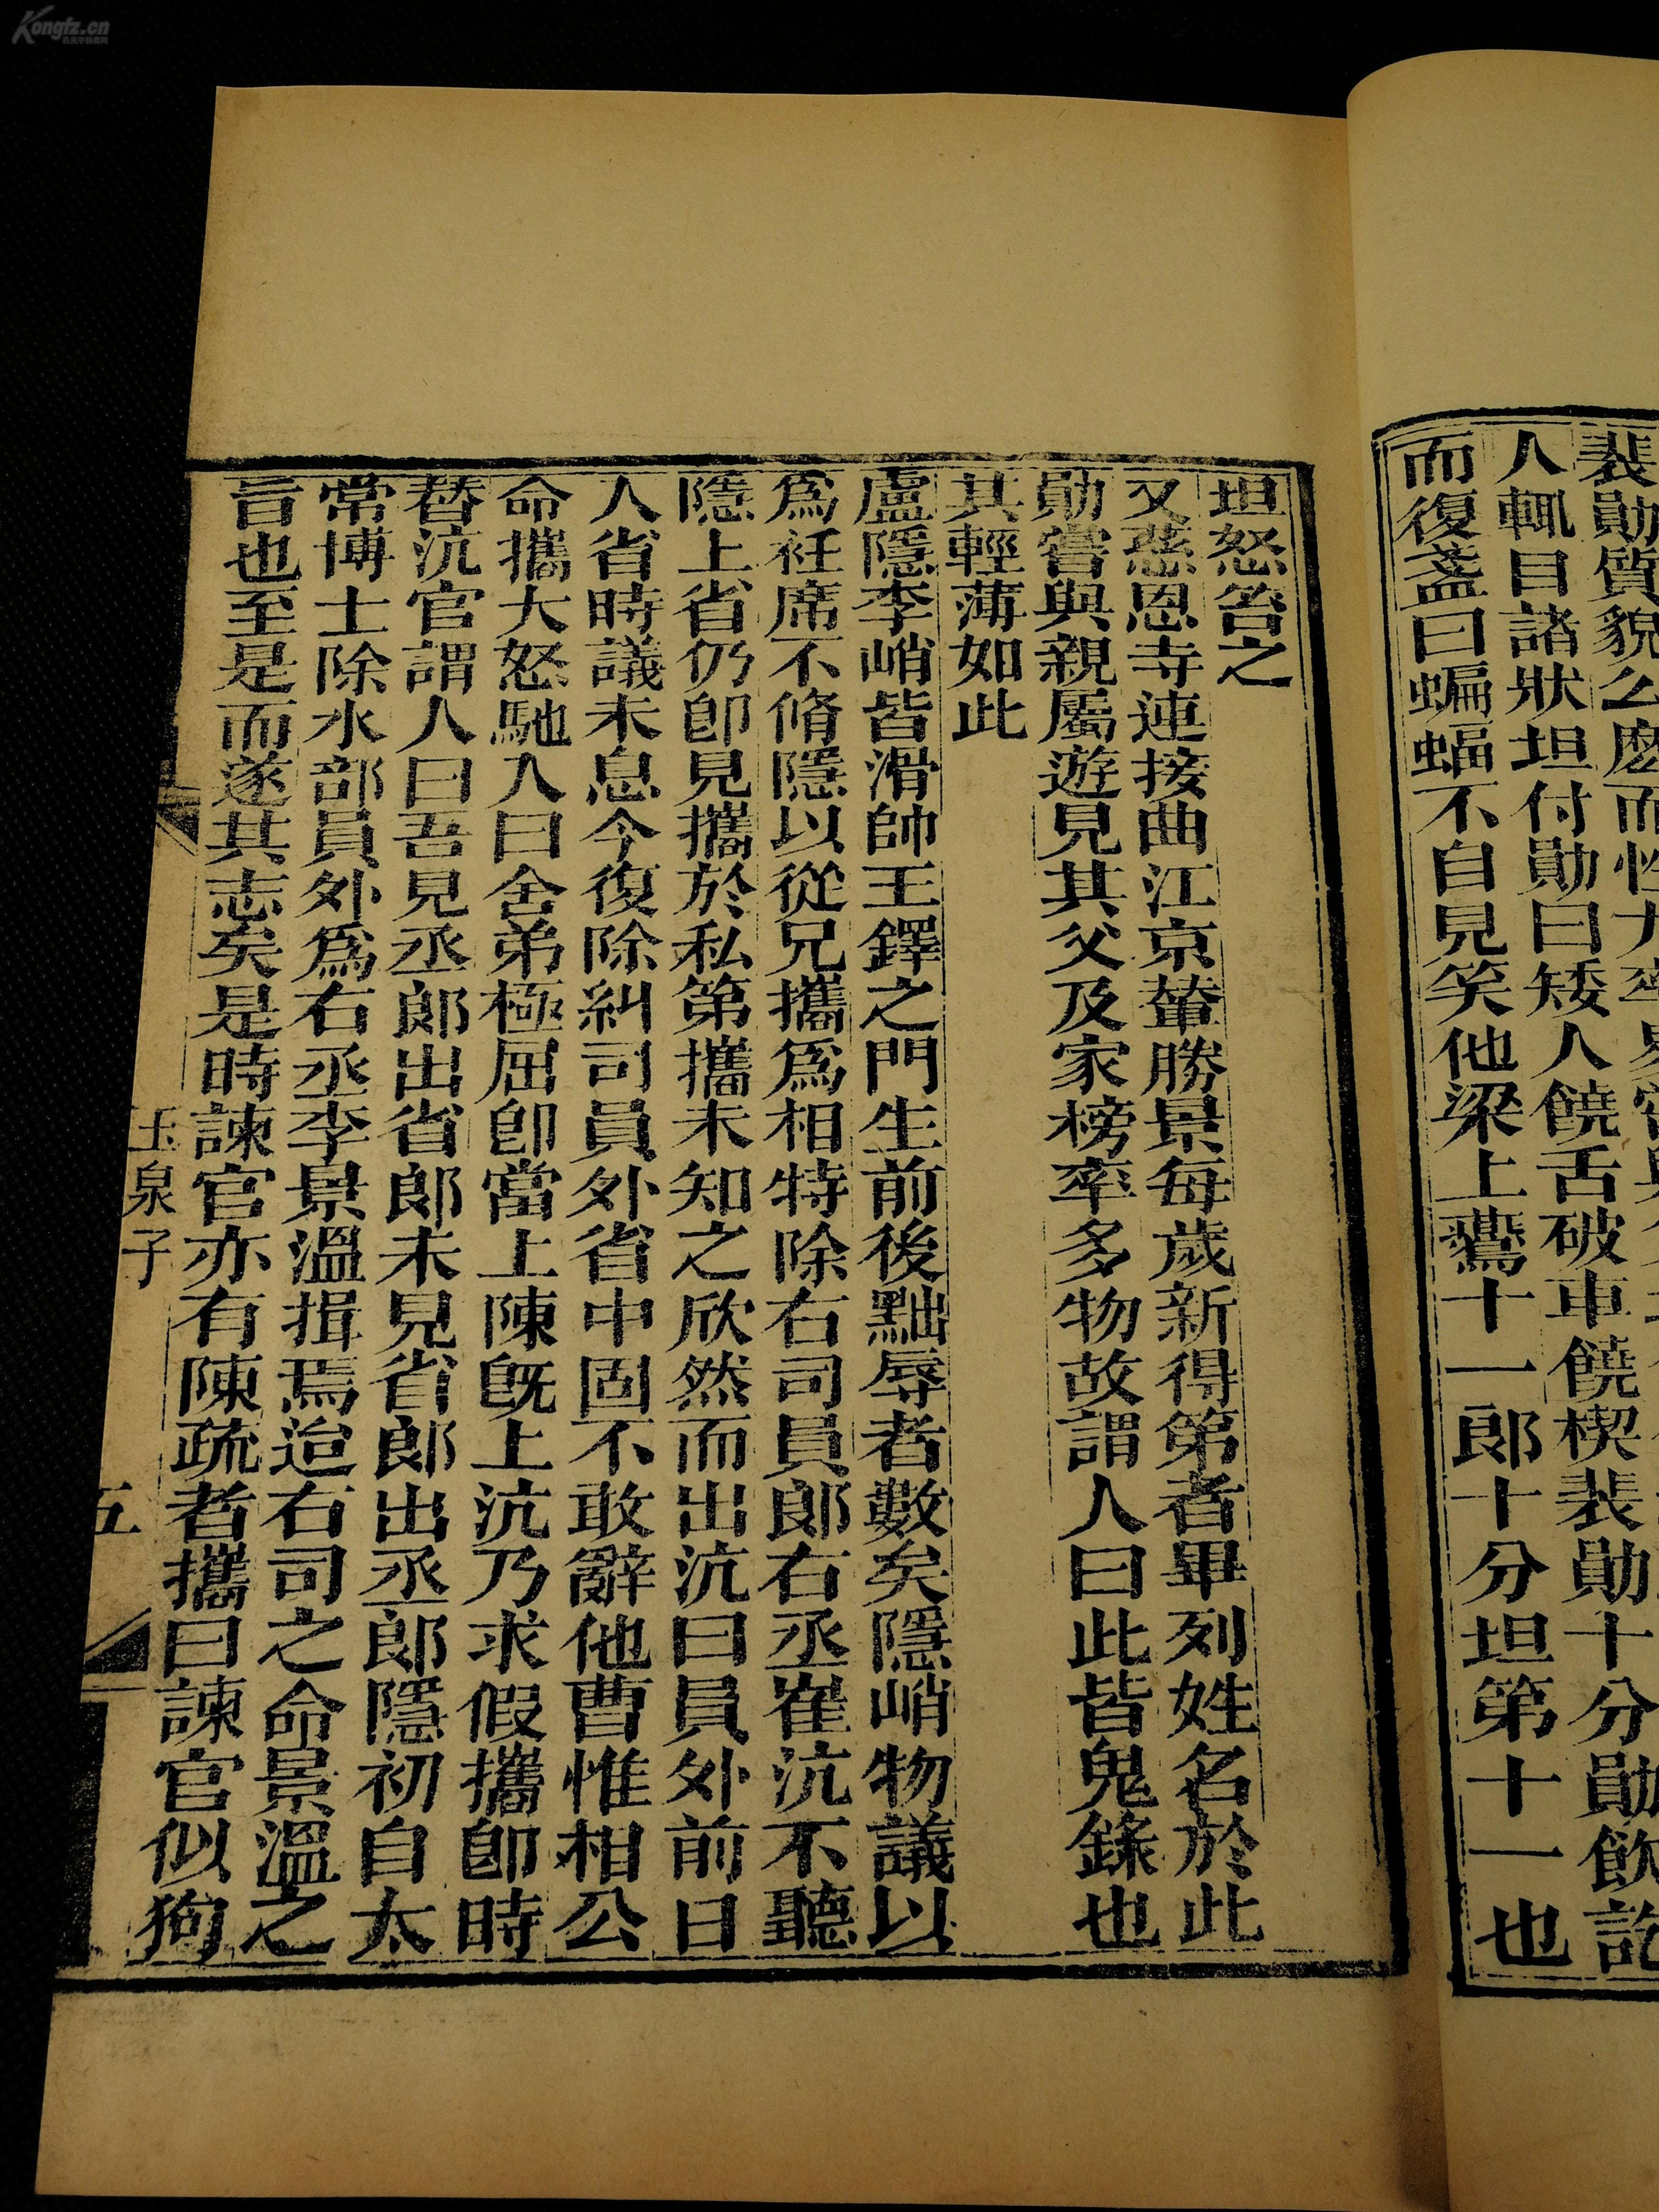 裴勛質貌么麽而性尤率
人輒目諸狀坦付勛曰矮人饒舌破車饒楔裴勛十分勛飲訖
而復盞曰蝙蝠不自見笑他梁上鷰十一郎十分坦第十一也
坦怒笞之
又慈恩寺連接曲江京輦勝景每歲新得第者畢列姓名於此
勛嘗與親屬遊見其父及家榜率多物故謂人曰此皆鬼錄也
其輕薄如此
盧隱李峭皆滑帥王鐸之門生前後黜辱者數矣隱峭物議以
爲衽席不脩隱以從兄攜爲相特除右司員郞右丞崔沆不聽
隱上省仍卽見攜於私第攜未知之欣然而出沆曰員外前日
入省時議未息今復除糾司員外省中固不敢辭他曹惟相公
命攜大怒馳入曰舍弟極屈卽當上陳旣上沆乃求假攜卽時
替沆官謂人曰吾見丞郞出省郞未見省郞出丞郞隱初自太
常博士除水部員外爲右丞李景溫揖焉迨右司之命景溫之
旨也至是而遂其志矣是時諫官亦有陳疏者攜曰諫官似狗
玉泉子
五
Kongfz.cn